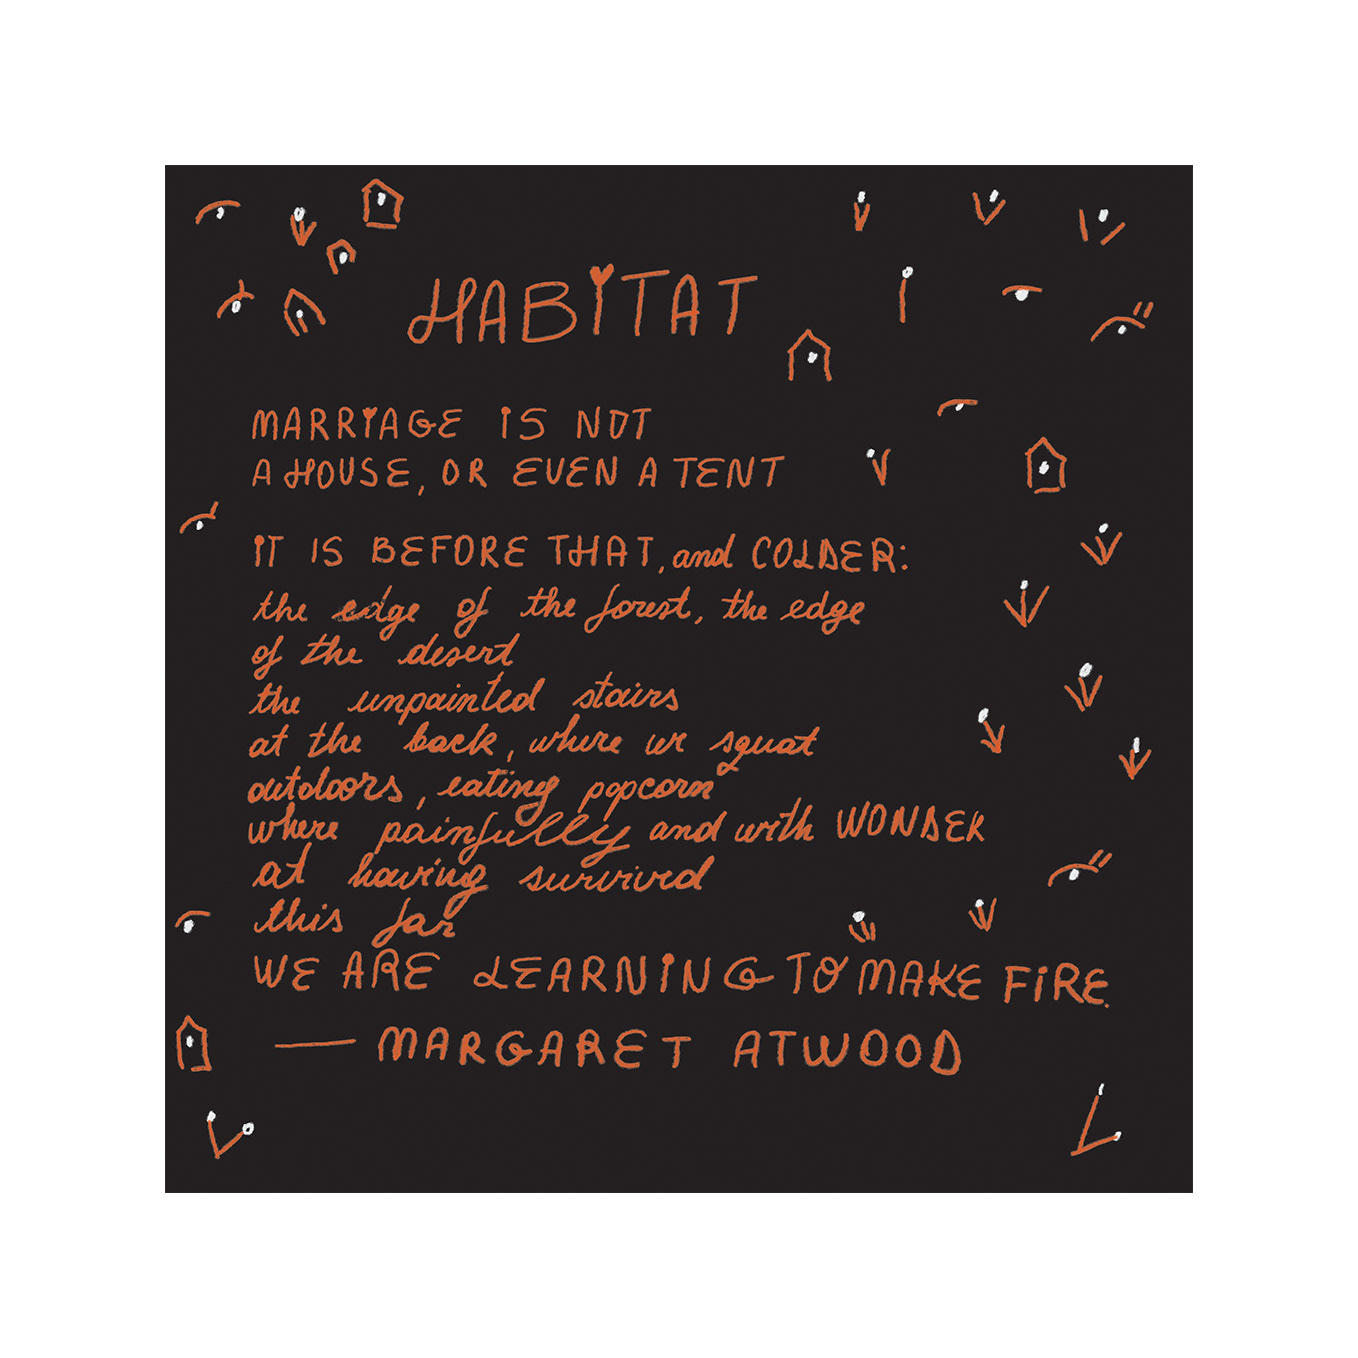 HABITAT
MARRIAGE IS NOT
A HOUSE, OR EVEN A TENT
IT IS BEFORE THAT, and COLDER:
the edge of the forest, the edge
of the desert
the unpainted stairs
at the back, where we squat
outdoors, eating popcorn
where painfully and with WONDER
at having survived
this far
WE ARE LEARNING TO MAKE FIRE.
— MARGARET ATWOOD